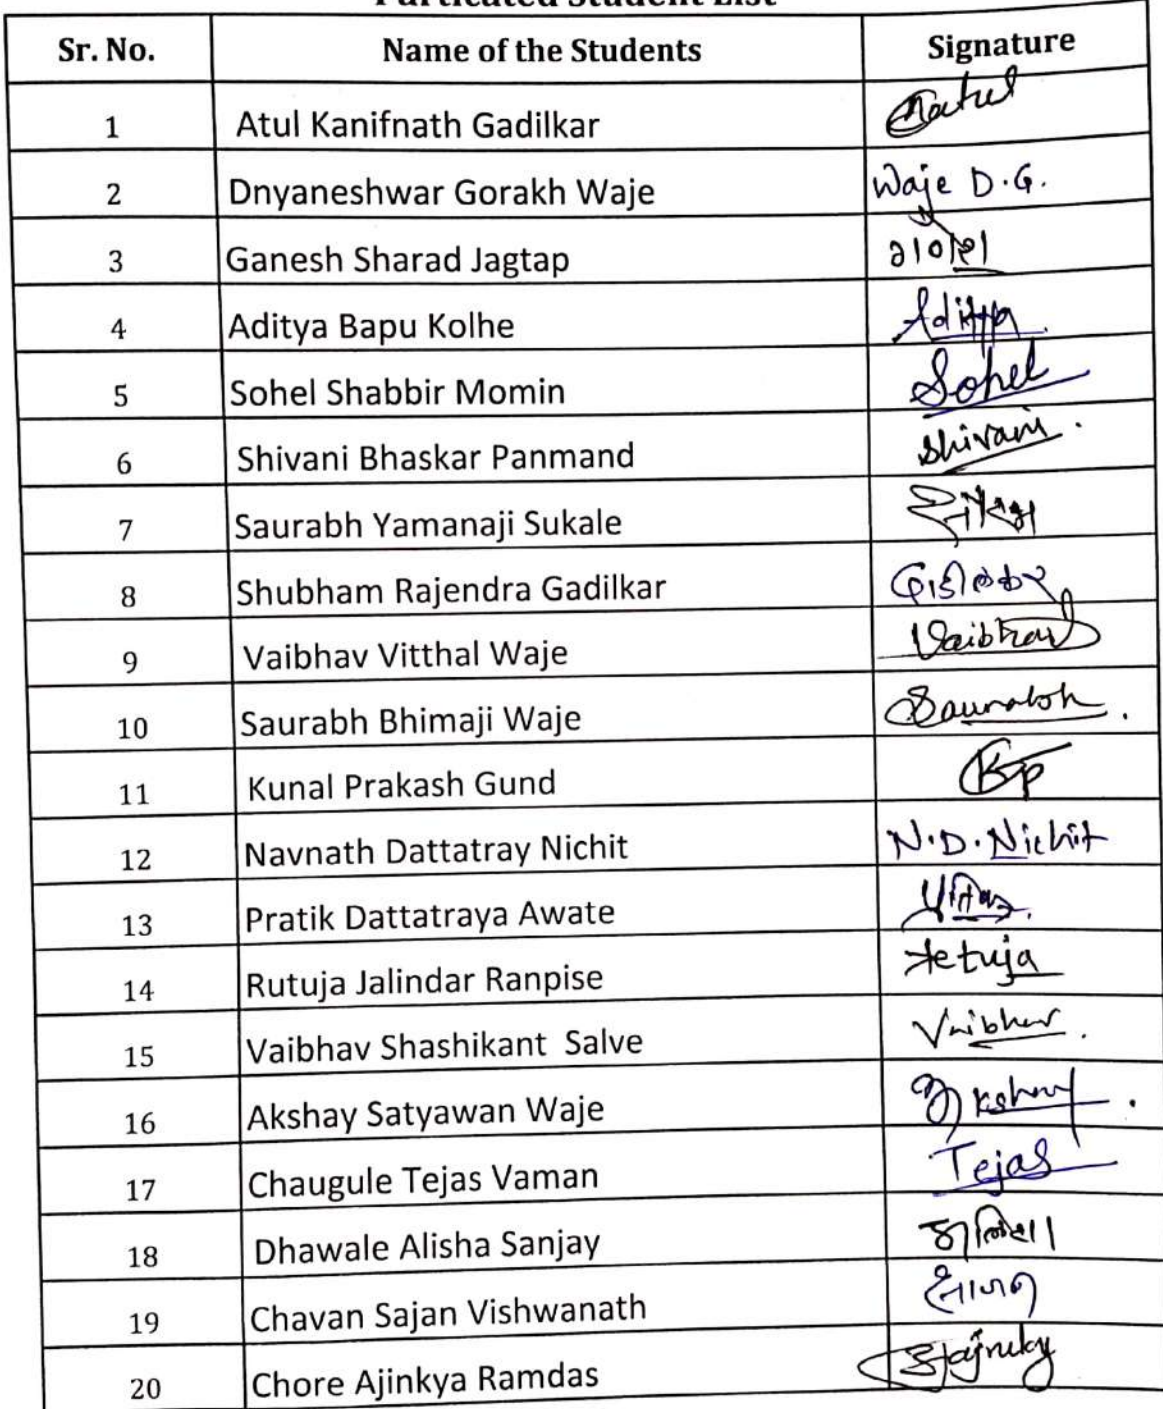 Particated Student List
Sr. No. Name of the Students Signature
1 Atul Kanifnath Gadilkar
2 Dnyaneshwar Gorakh Waje Waje D.G.
3 Ganesh Sharad Jagtap गणेश
4 Aditya Bapu Kolhe Aditya
5 Sohel Shabbir Momin Sohel
6 Shivani Bhaskar Panmand Shivani
7 Saurabh Yamanaji Sukale
8 Shubham Rajendra Gadilkar गाडीलकर
9 Vaibhav Vitthal Waje Vaibhav
10 Saurabh Bhimaji Waje Saurabh
11 Kunal Prakash Gund
12 Navnath Dattatray Nichit N.D. Nichit
13 Pratik Dattatraya Awate
14 Rutuja Jalindar Ranpise
15 Vaibhav Shashikant Salve Vaibhav
16 Akshay Satyawan Waje
17 Chaugule Tejas Vaman Tejas
18 Dhawale Alisha Sanjay
19 Chavan Sajan Vishwanath साजन
20 Chore Ajinkya Ramdas